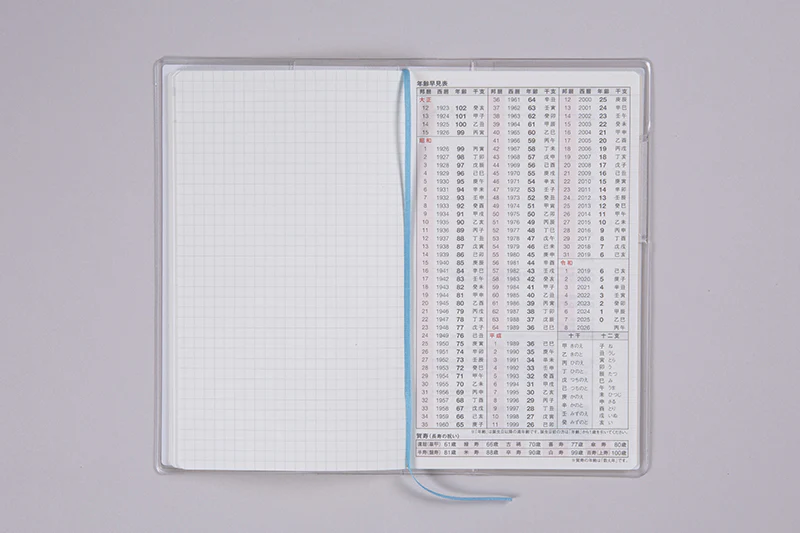 年齢早見表
邦暦 西暦 年齢 干支
大正
12 1923 102 癸亥
13 1924 101 甲子
14 1925 100 乙丑
15 1926 99 丙寅
昭和
1 1926 99 丙寅
2 1927 98 丁卯
3 1928 97 戊辰
4 1929 96 己巳
5 1930 95 庚午
6 1931 94 辛未
7 1932 93 壬申
8 1933 92 癸酉
9 1934 91 甲戌
10 1935 90 乙亥
11 1936 89 丙子
12 1937 88 丁丑
13 1938 87 戊寅
14 1939 86 己卯
15 1940 85 庚辰
16 1941 84 辛巳
17 1942 83 壬午
18 1943 82 癸未
19 1944 81 甲申
20 1945 80 乙酉
21 1946 79 丙戌
22 1947 78 丁亥
23 1948 77 戊子
24 1949 76 己丑
25 1950 75 庚寅
26 1951 74 辛卯
27 1952 73 壬辰
28 1953 72 癸巳
29 1954 71 甲午
30 1955 70 乙未
31 1956 69 丙申
32 1957 68 丁酉
33 1958 67 戊戌
34 1959 66 己亥
35 1960 65 庚子
邦暦 西暦 年齢 干支
36 1961 64 辛丑
37 1962 63 壬寅
38 1963 62 癸卯
39 1964 61 甲辰
40 1965 60 乙巳
41 1966 59 丙午
42 1967 58 丁未
43 1968 57 戊申
44 1969 56 己酉
45 1970 55 庚戌
46 1971 54 辛亥
47 1972 53 壬子
48 1973 52 癸丑
49 1974 51 甲寅
50 1975 50 乙卯
51 1976 49 丙辰
52 1977 48 丁巳
53 1978 47 戊午
54 1979 46 己未
55 1980 45 庚申
56 1981 44 辛酉
57 1982 43 壬戌
58 1983 42 癸亥
59 1984 41 甲子
60 1985 40 乙丑
61 1986 39 丙寅
62 1987 38 丁卯
63 1988 37 戊辰
64 1989 36 己巳
平成
1 1989 36 己巳
2 1990 35 庚午
3 1991 34 辛未
4 1992 33 壬申
5 1993 32 癸酉
6 1994 31 甲戌
7 1995 30 乙亥
8 1996 29 丙子
9 1997 28 丁丑
10 1998 27 戊寅
11 1999 26 己卯
邦暦 西暦 年齢 干支
12 2000 25 庚辰
13 2001 24 辛巳
14 2002 23 壬午
15 2003 22 癸未
16 2004 21 甲申
17 2005 20 乙酉
18 2006 19 丙戌
19 2007 18 丁亥
20 2008 17 戊子
21 2009 16 己丑
22 2010 15 庚寅
23 2011 14 辛卯
24 2012 13 壬辰
25 2013 12 癸巳
26 2014 11 甲午
27 2015 10 乙未
28 2016 9 丙申
29 2017 8 丁酉
30 2018 7 戊戌
31 2019 6 己亥
令和
1 2019 6 己亥
2 2020 5 庚子
3 2021 4 辛丑
4 2022 3 壬寅
5 2023 2 癸卯
6 2024 1 甲辰
7 2025 0 乙巳
8 2026 丙午
十干 十二支
甲 きのえ 子 ね
乙 きのと 丑 うし
丙 ひのえ 寅 とら
丁 ひのと 卯 う
戊 つちのえ 辰 たつ
己 つちのと 巳 み
庚 かのえ 午 うま
辛 かのと 未 ひつじ
壬 みずのえ 申 さる
癸 みずのと 酉 とり
戌 いぬ
亥 い
賀寿(長寿の祝い)
還暦(華甲) 61歳 緑寿 66歳 古稀 70歳 喜寿 77歳 傘寿 80歳
半寿(盤寿) 81歳 米寿 88歳 卒寿 90歳 白寿 99歳 百寿(上寿) 100歳
※賀寿の年齢は「数え年」です。